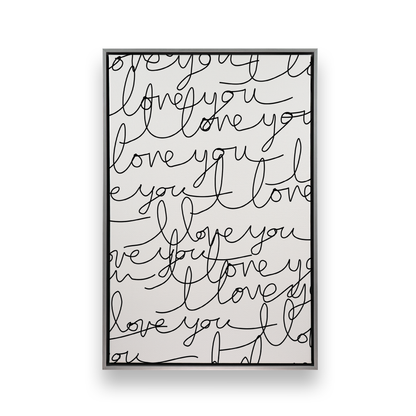 ove you I l
I love you
I love you
love you
e you I love
I love you
ove you I love yo
I love y
love you I lo
ou